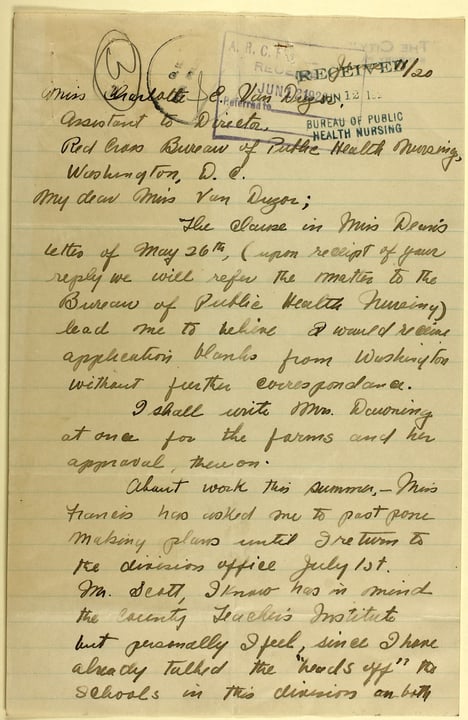 3
A. R. C. F.
RECE
JUN 12 1920
Referred to
"THE CITY"
RECEIVED
JUN 12 19
BUREAU OF PUBLIC
HEALTH NURSING
11/20
Miss Charlotte E. Van Duzor,
Assistant to Director,
Red Cross Bureau of Public Health Nursing,
Washington, D. C.
My dear Miss Van Duzor;
The clause in Miss Dean's
letter of May 26th, (upon receipt of your
reply we will refer the matter to the
Bureau of Public Health Nursing)
lead me to believe I would receive
application blanks from Washington
without further correspondance.
I shall write Mrs. Downing
at once for the forms and her
approval, thereon.
About work this summer, — Miss
Francis has asked me to post pone
making plans until I return to
the division office July 1st.
Mr. Scott, I know has in mind
the County Teachers Institute
but personally I feel, since I have
already talked the "heads off" the
Schools in this division on both